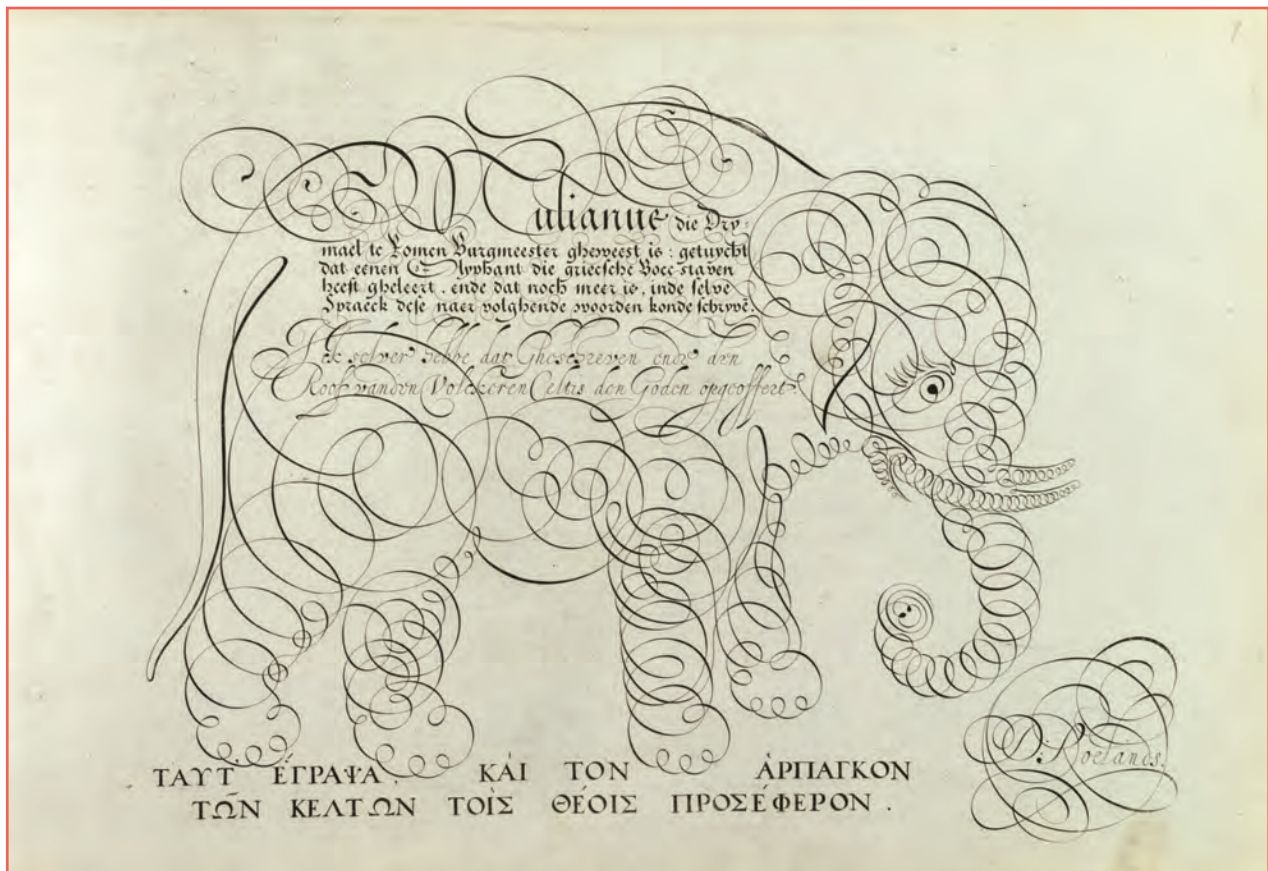 Mulianus die Dry-
mael te Romen Burgmeester gheweest is: getuycht
dat eenen Olyphant die griecsche Bocc-staven
heeft gheleert. ende dat noch meer is, inde selve
Spraeck dese naer volghende woorden konde schryvē.
Ick selver hebbe dat Gheschreven ende den
Roof vanden Volckeren Celtis den Goden opgeoffert.
D: Roelands.
ΤΑΥΤ ΈΓΡΑΨΑ. ΚΑΙ ΤΟΝ ἈΡΠΑΓΚΟΝ
ΤΩ͂Ν ΚΕΛΤΩΝ ΤΟΙΣ ΘΈΟΙΣ ΠΡΟΣΈΦΕΡΟΝ.